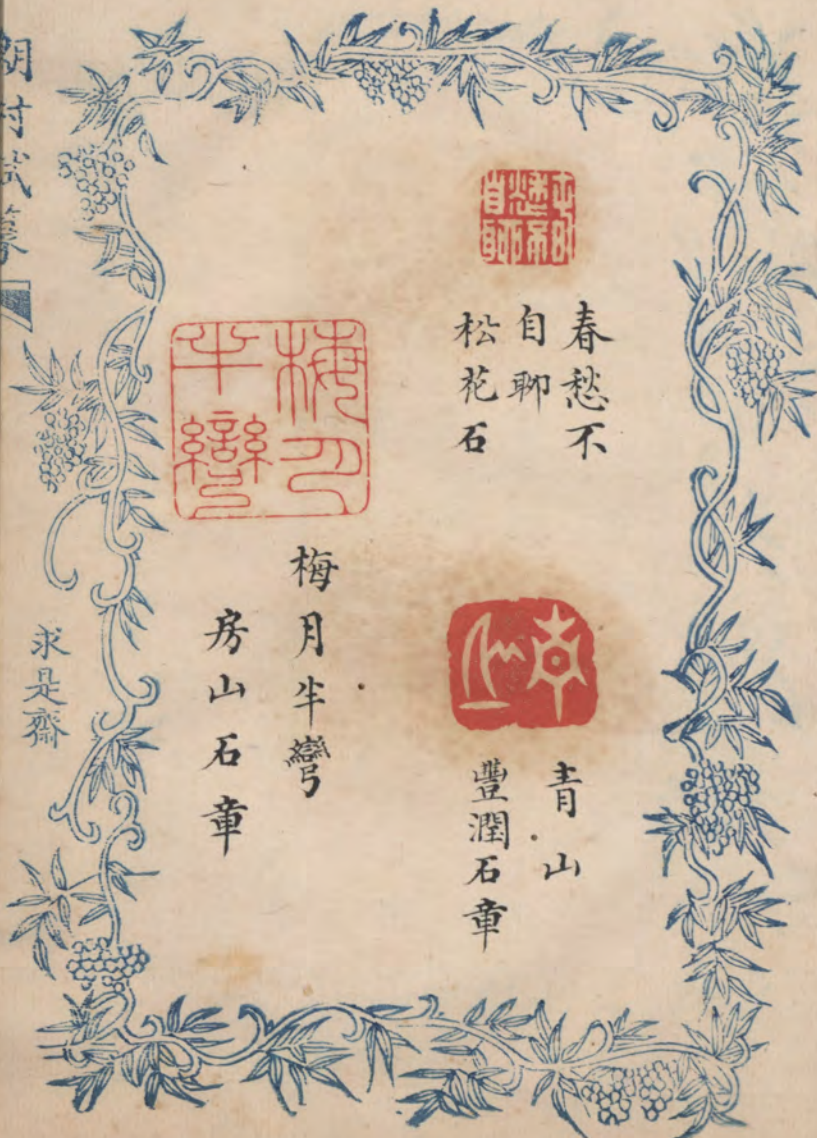 春愁不自聊
春愁不
自聊
松花石
青山
青山
豐潤石章
梅月
半彎
梅月半彎
房山石章
湖村試篆
求是齋